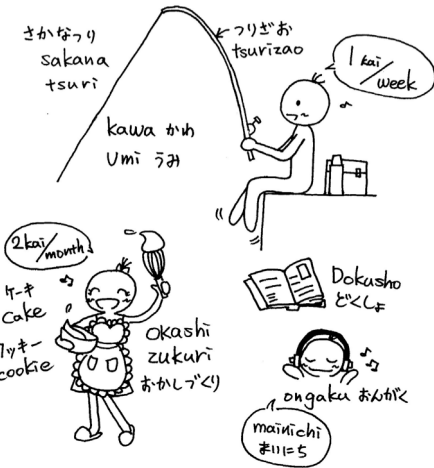 さかなつり
sakana
tsuri
つりざお
tsurizao
1 kai/week
kawa かわ
Umi うみ
2kai/month
ケーキ
cake
クッキー
cookie
okashi
zukuri
おかしづくり
Dokusho
どくしょ
ongaku おんがく
mainichi
まいにち